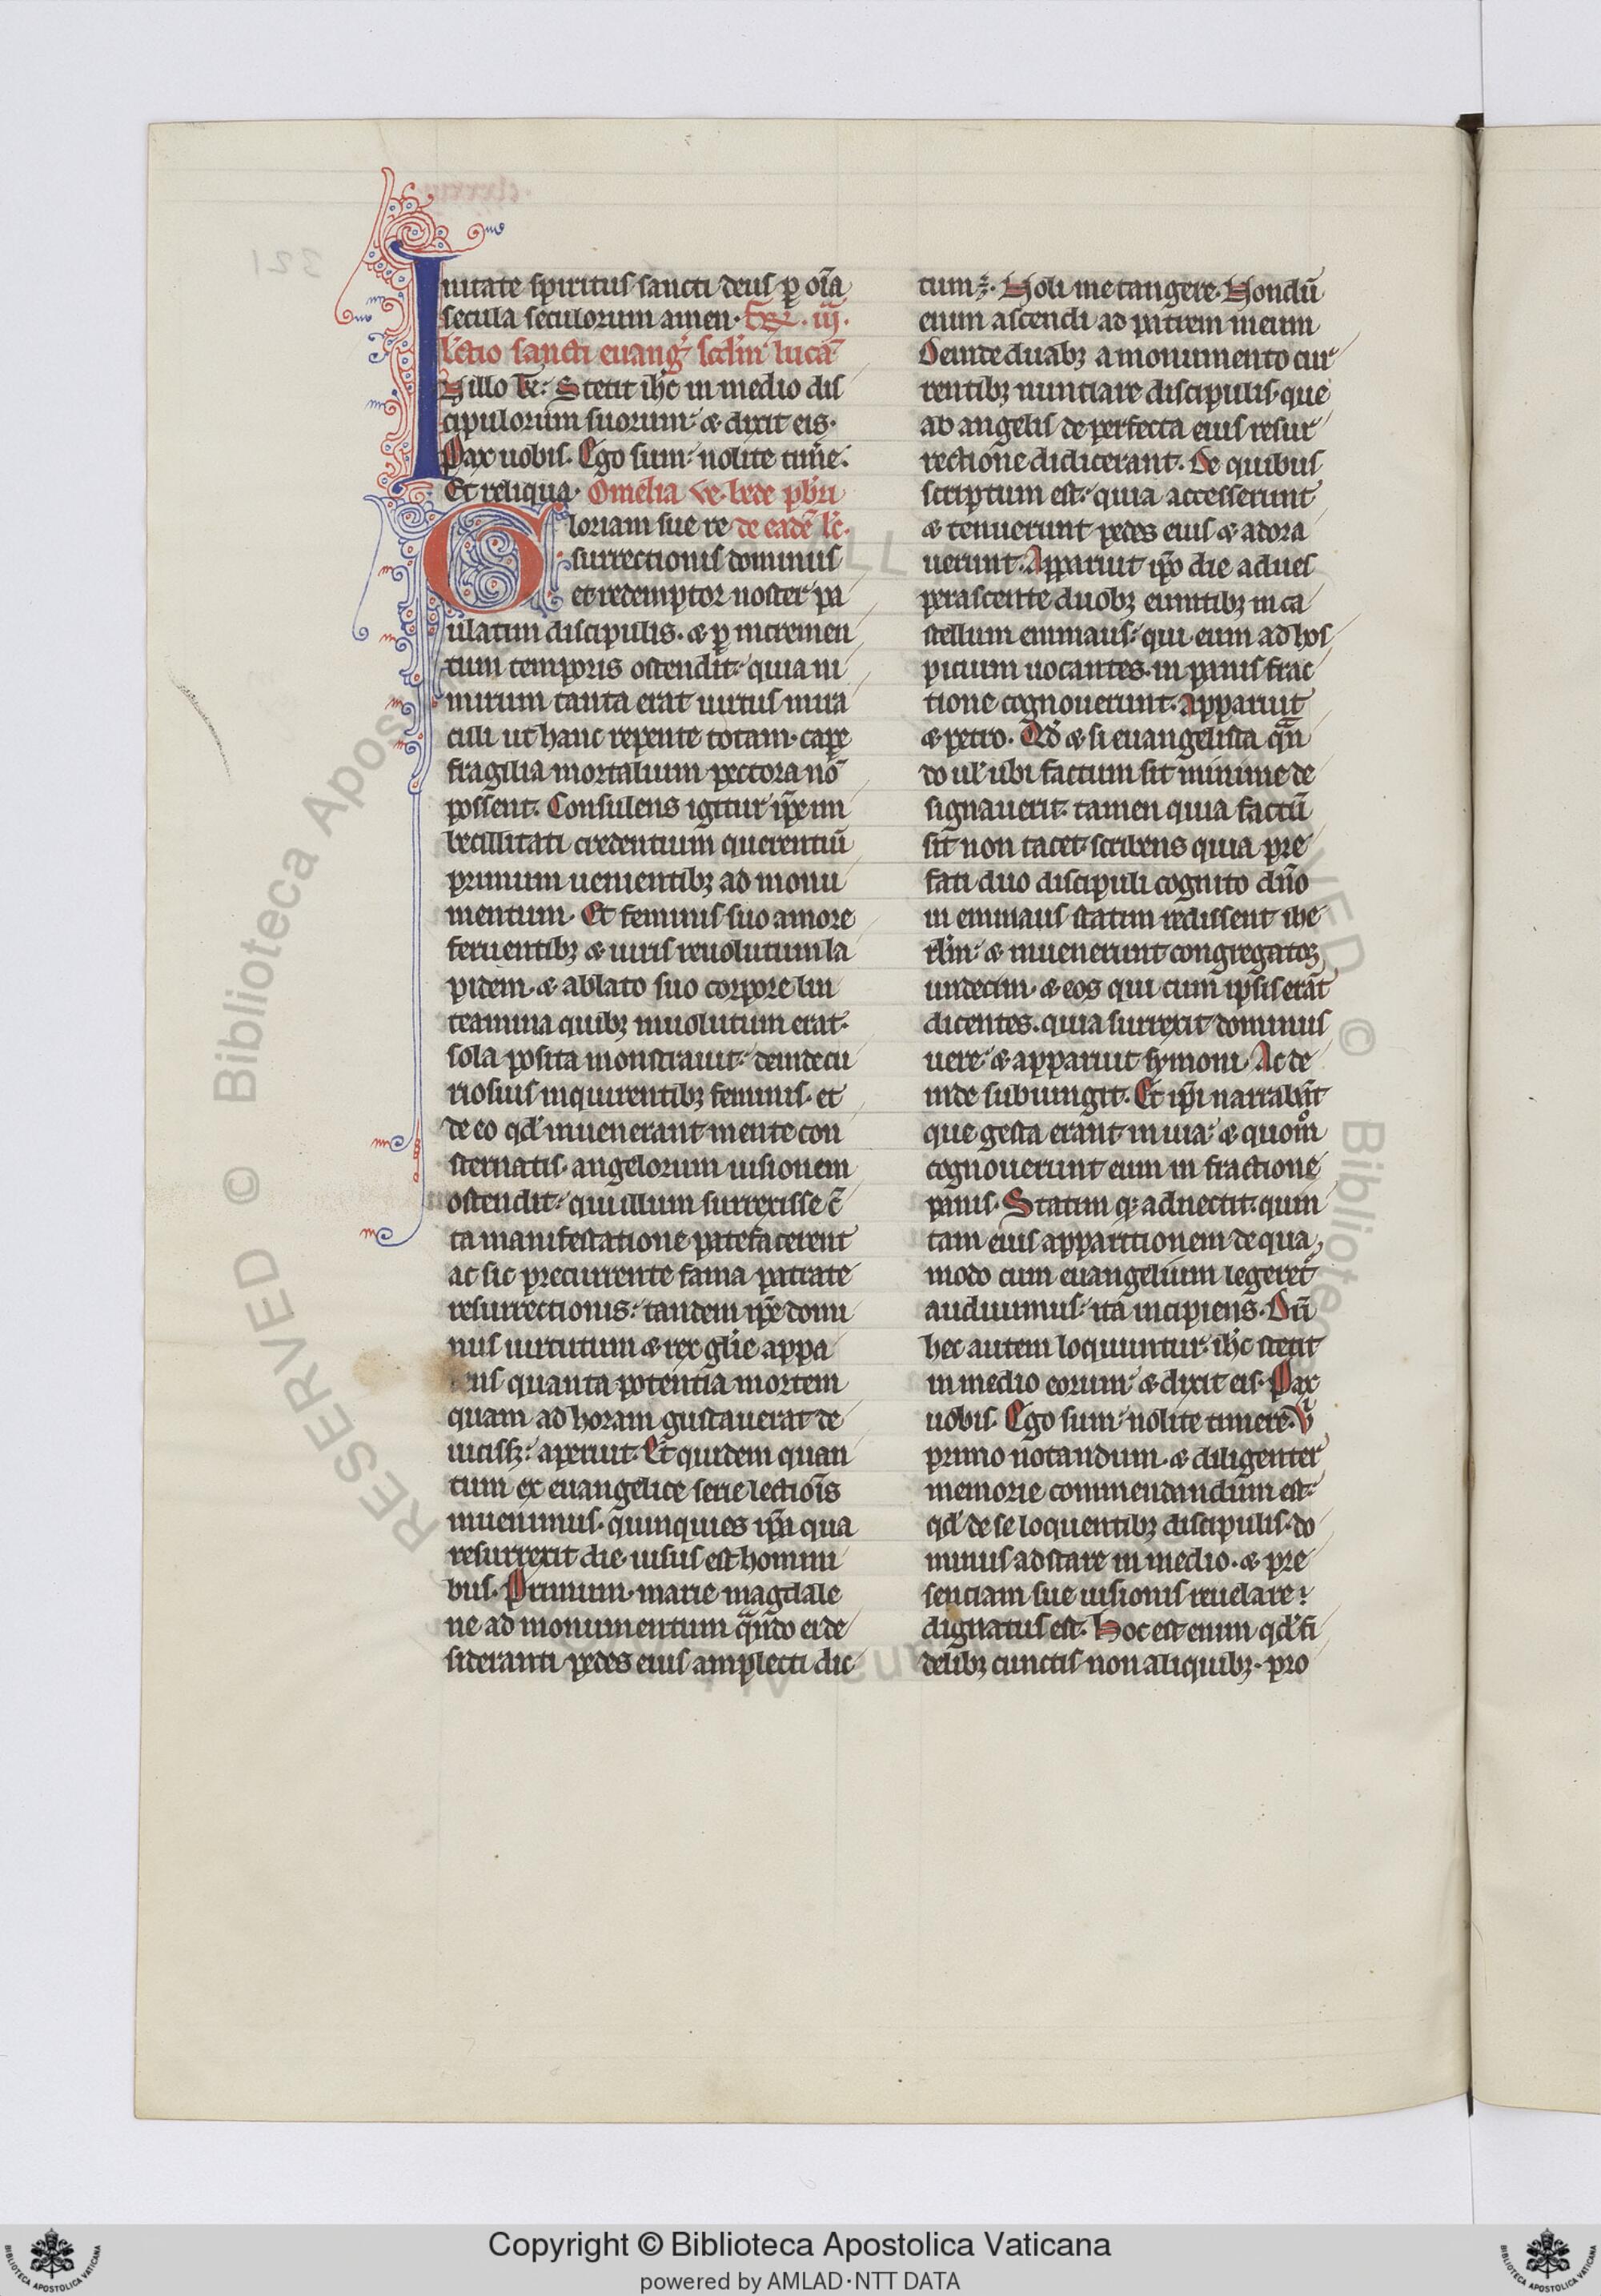 nitate spiritus sancti deus p̱ oīa
secula seculorum amen. F͞r̄. iij.
lc̄tio sancti euang̓. scd̓m lucā
In illo t̄r̄: Stetit ih̄c in medio dis
cipulorum suorum: ⁊ dixit eis.
Pax uobis. Ego sum: nolite tim̄e.
Et reliqua. Omelia ve. bede pb̄ri
Gloriam sue re de eadē lc̄.
surrectionis dominus
et redemptor noster pa
ulatim discipulis. ⁊ p̱ incremen
tum temporis ostendit: quia ni
mirum tanta erat uirtus mira
culi ut hanc repente totam. cape
fragilia mortalium pectora nō
possent. Consulens igitur ip̄e im
becillitati credentium querentiū
primum uenientibꝫ ad monu
mentum. Et feminis suo amore
feruentibꝫ ⁊ uiris reuolutum la
pidem. ⁊ ablato suo corpore lin
teamina quibꝫ inuolutum erat.
sola posita monstrauit: deinde cu
riosius inquirentibꝫ feminis. et
de eo qd̓ inuenerant mente con
sternatis. angelorum uisionem
ostendit: qui illum surrexisse c̄
ta manifestatione patefacerent
ac sic precurrente fama patrate
resurrectionis: tandem ip̄e domi
nus uirtutum ⁊ rex gl̄ie appa
ens quanta potentia mortem
quam ad horam gustauerat de
uicissꝫ: aperuit. Et quidem quan
tum ex euangelice serie lectiōis
inuenimus. quinquies ip̄a qua
resurrexit die. uisus est homini
bus. Primum. marie magdale
ne ad monumentum qn̄do ei de
sideranti pedes eius amplecti dic
tum ē. Noli me tangere. Nondū
enim ascendi ad patrem meum
Deinde duabꝫ a monumento cur
rentibꝫ nuntiare discipulis. que
ab angelis de perfecta eius resur
rectione didicerant. De quibus
scriptum est: quia accesserunt
⁊ tenuerunt pedes eius ⁊ adora
uerunt. Apparuit ip̄o die aduef
perascente duobꝫ euntibꝫ in ca
stellum emmaus: qui eum ad hos
picium uocantes. in panis frac
tione cognouerunt. Apparuit
⁊ petro. Qd̓ ⁊ si euangelista qn̄
do ul̓ ubi factum sit minime de
signauerit. tamen quia factū
sit non tacet. scribens quia pre
fati duo discipuli cognito dn̄o
in emmaus statim redissent ihe
rl̄m: ⁊ inuenerunt congregatos
undecim. ⁊ eos qui cum ipsis erāt
dicentes. quia surrexit dominus
uere: ⁊ apparuit symoni. Ac de
inde subiungit. Et ip̄i narrabāt
que gesta erant in uia: ⁊ quom̊
cognouerunt eum in fractione
panis. Statim qꝫ adnectit. quin
tam eius apparitionem de qua
modo cum euangelium legeret̄
audiuimus: ita incipiens. Dū
hec autem loquuntur: ih̄c stetit
in medio eorum: ⁊ dixit eis. Pax
uobis. Ego sum: nolite timere. Vͥ
primo notandum. ⁊ diligenter
memorie commendandum est:
qd̓ de se loquentibꝫ discipulis. do
minus adstare in medio. ⁊ pre
sentiam sue uisionis reuelare:
dignatus est. Hoc est enim qd̓ fi
delibꝫ cunctis non aliquibꝫ. pro
Copyright © Biblioteca Apostolica Vaticana
powered by AMLAD·NTT DATA